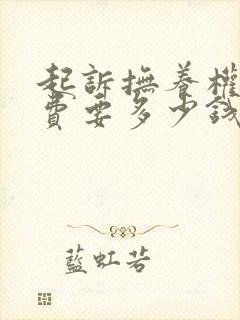 起訴撫養權
費要多少錢
藍虹若